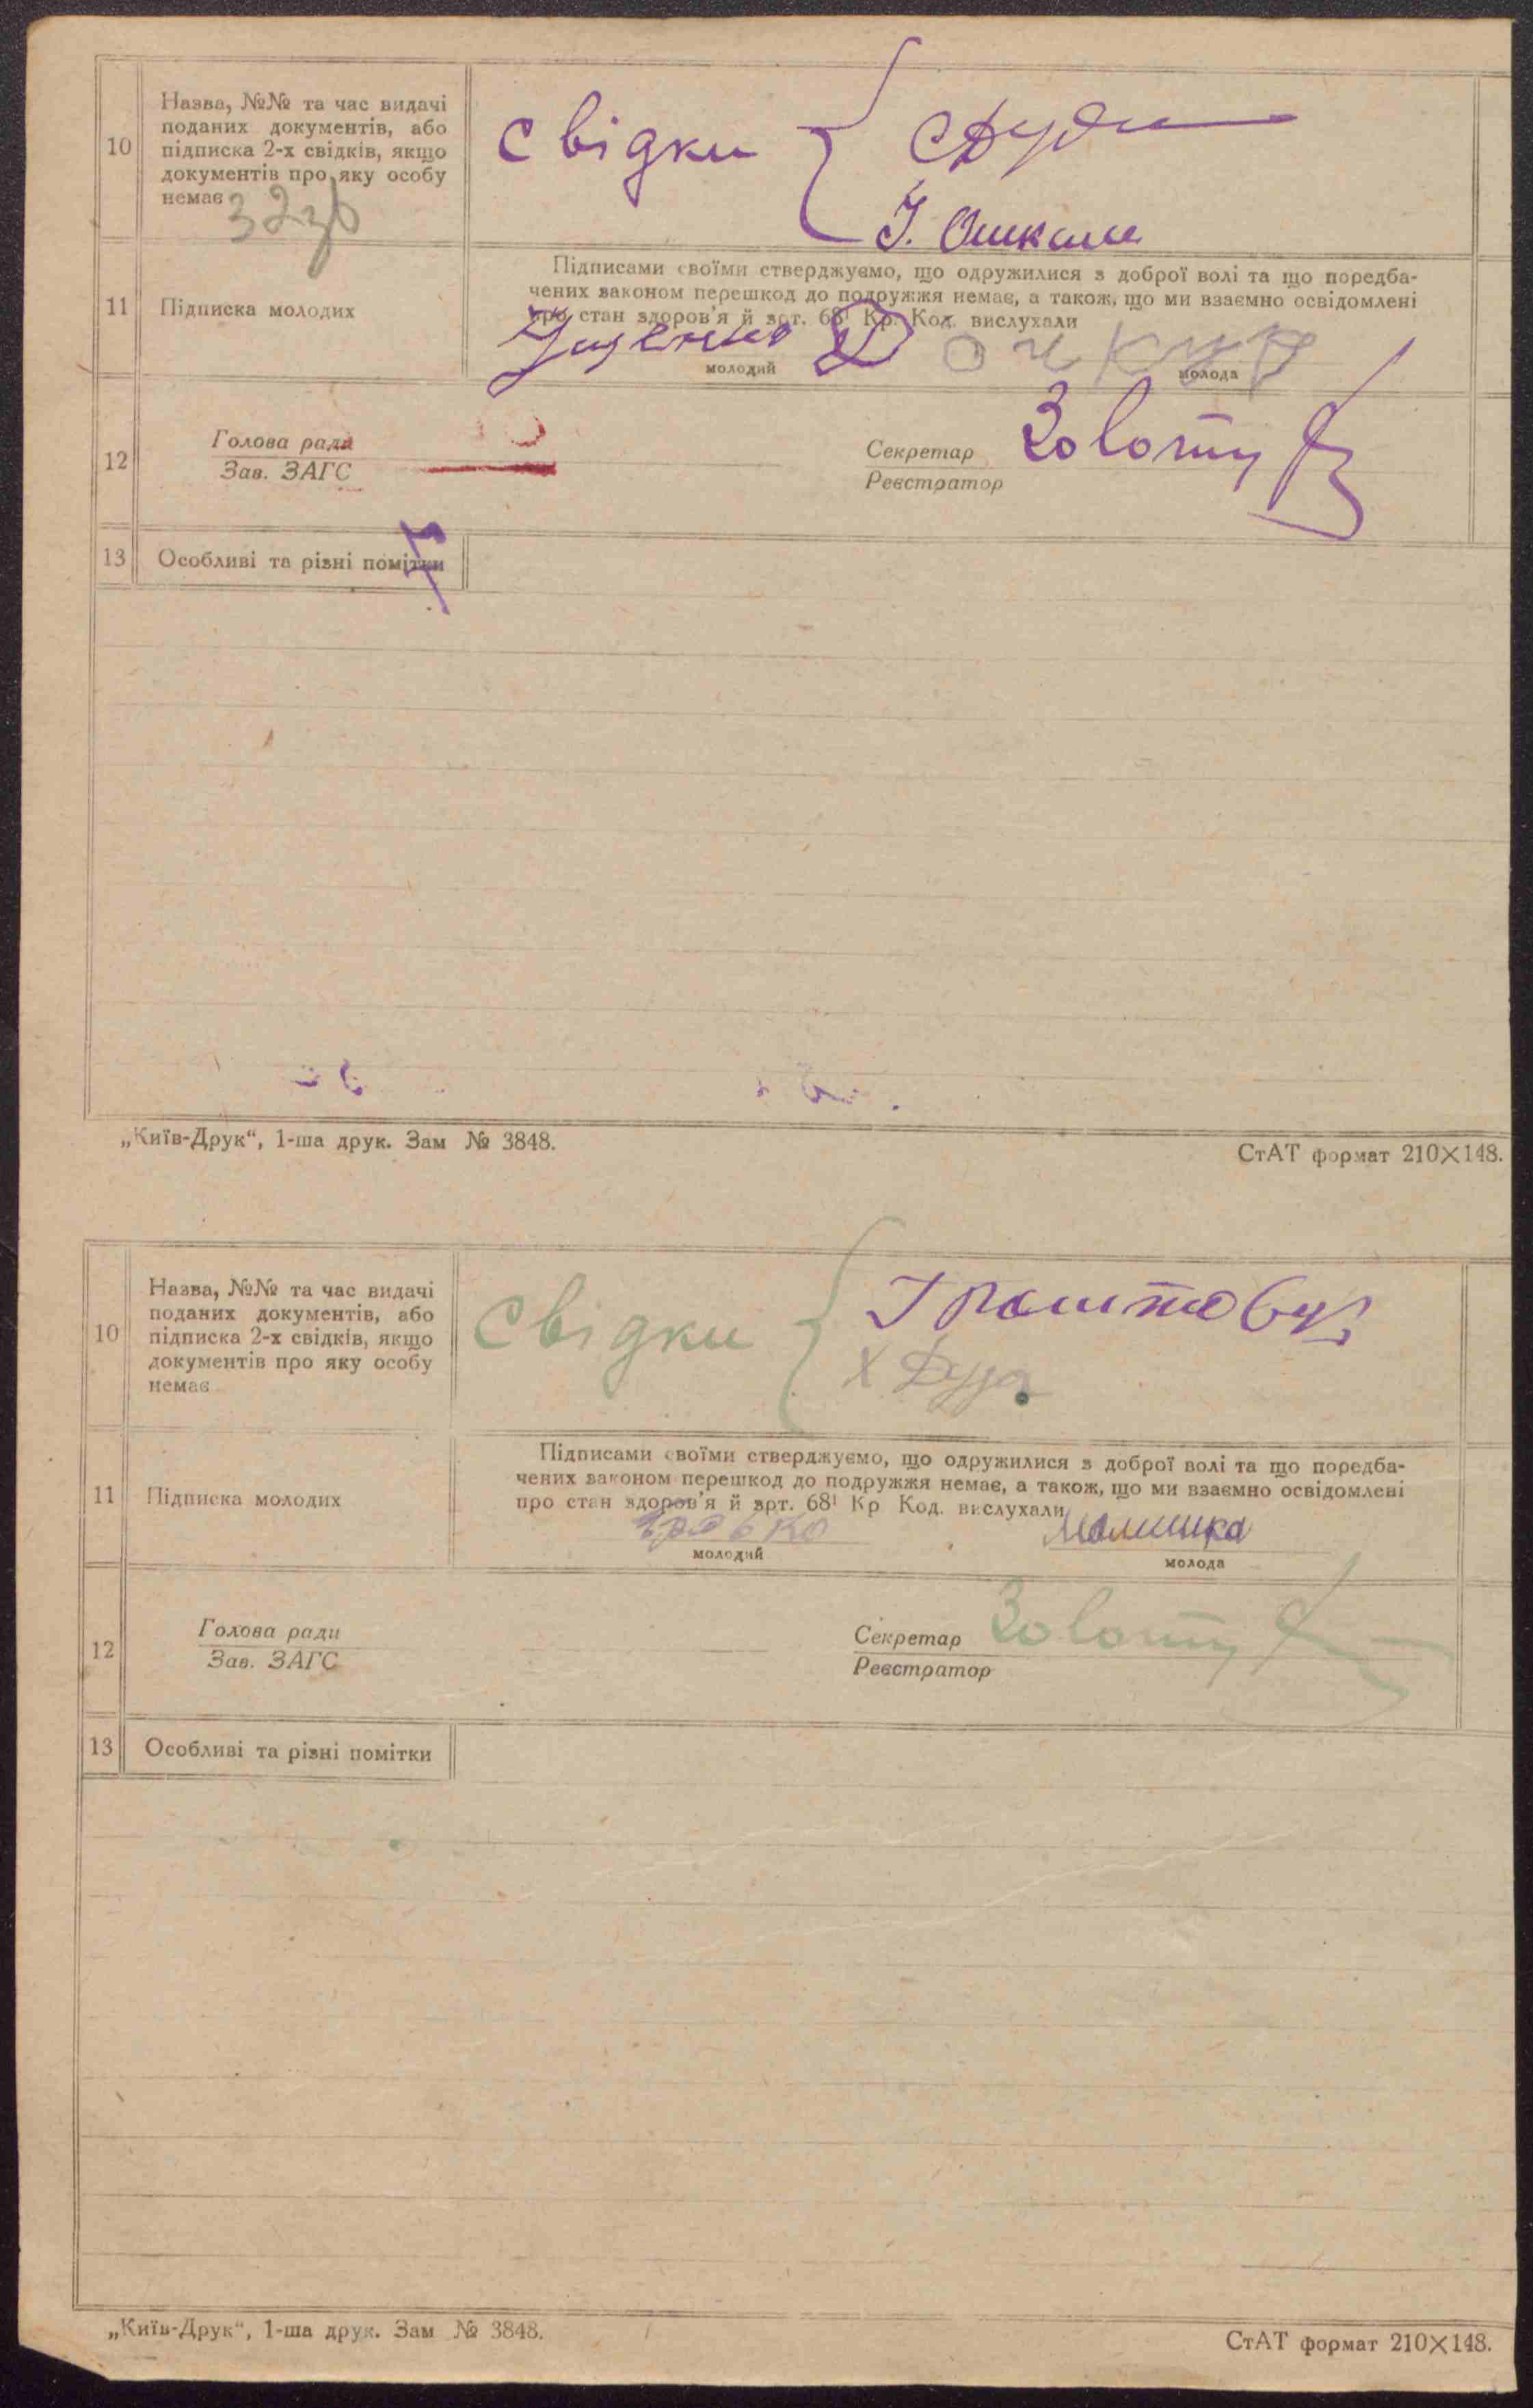 10
Назва, №№ та час видачі
поданих документів, або
підписка 2-х свідків, якщо
документів про яку особу
немає
свідки
11
Підписка молодих
Підписами своїми стверджуємо, що одружилися з доброї волі та що поредба-
чених законом перешкод до подружжя немає, а також, що ми взаємно освідомлені
про стан здоров'я й арт. 68¹ Кр. Код. вислухали
молодий
молода
12
Голова ради
Зав. ЗАГС
Секретар
Реєстратор
13
Особливі та різні помітки
„Київ-Друк“, 1-ша друк. Зам № 3848.
СтАТ формат 210×148.
10
Назва, №№ та час видачі
поданих документів, або
підписка 2-х свідків, якщо
документів про яку особу
немає
свідки
11
Підписка молодих
Підписами своїми стверджуємо, що одружилися з доброї волі та що поредба-
чених законом перешкод до подружжя немає, а також, що ми взаємно освідомлені
про стан здоров'я й арт. 68¹ Кр Код. вислухали
Малишка
молодий
молода
12
Голова ради
Зав. ЗАГС
Секретар
Реєстратор
13
Особливі та різні помітки
„Київ-Друк“, 1-ша друк. Зам № 3848.
СтАТ формат 210×148.